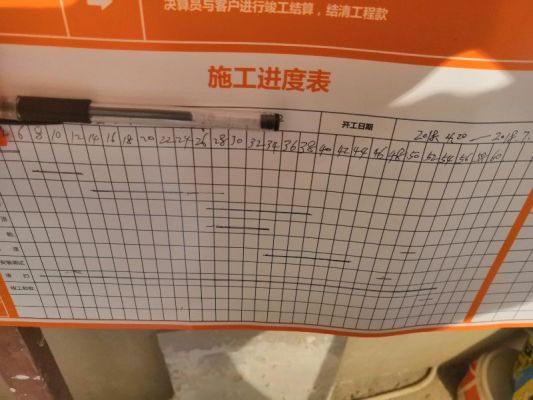 决算员与客户进行竣工结算，结清工程款
施工进度表
开工日期 2018.4.20 — 2018.7.
6 8 10 12 14 16 18 20 22 24 26 28 30 32 34 36 38 40 42 44 46 48 50 52 54 56 58 60